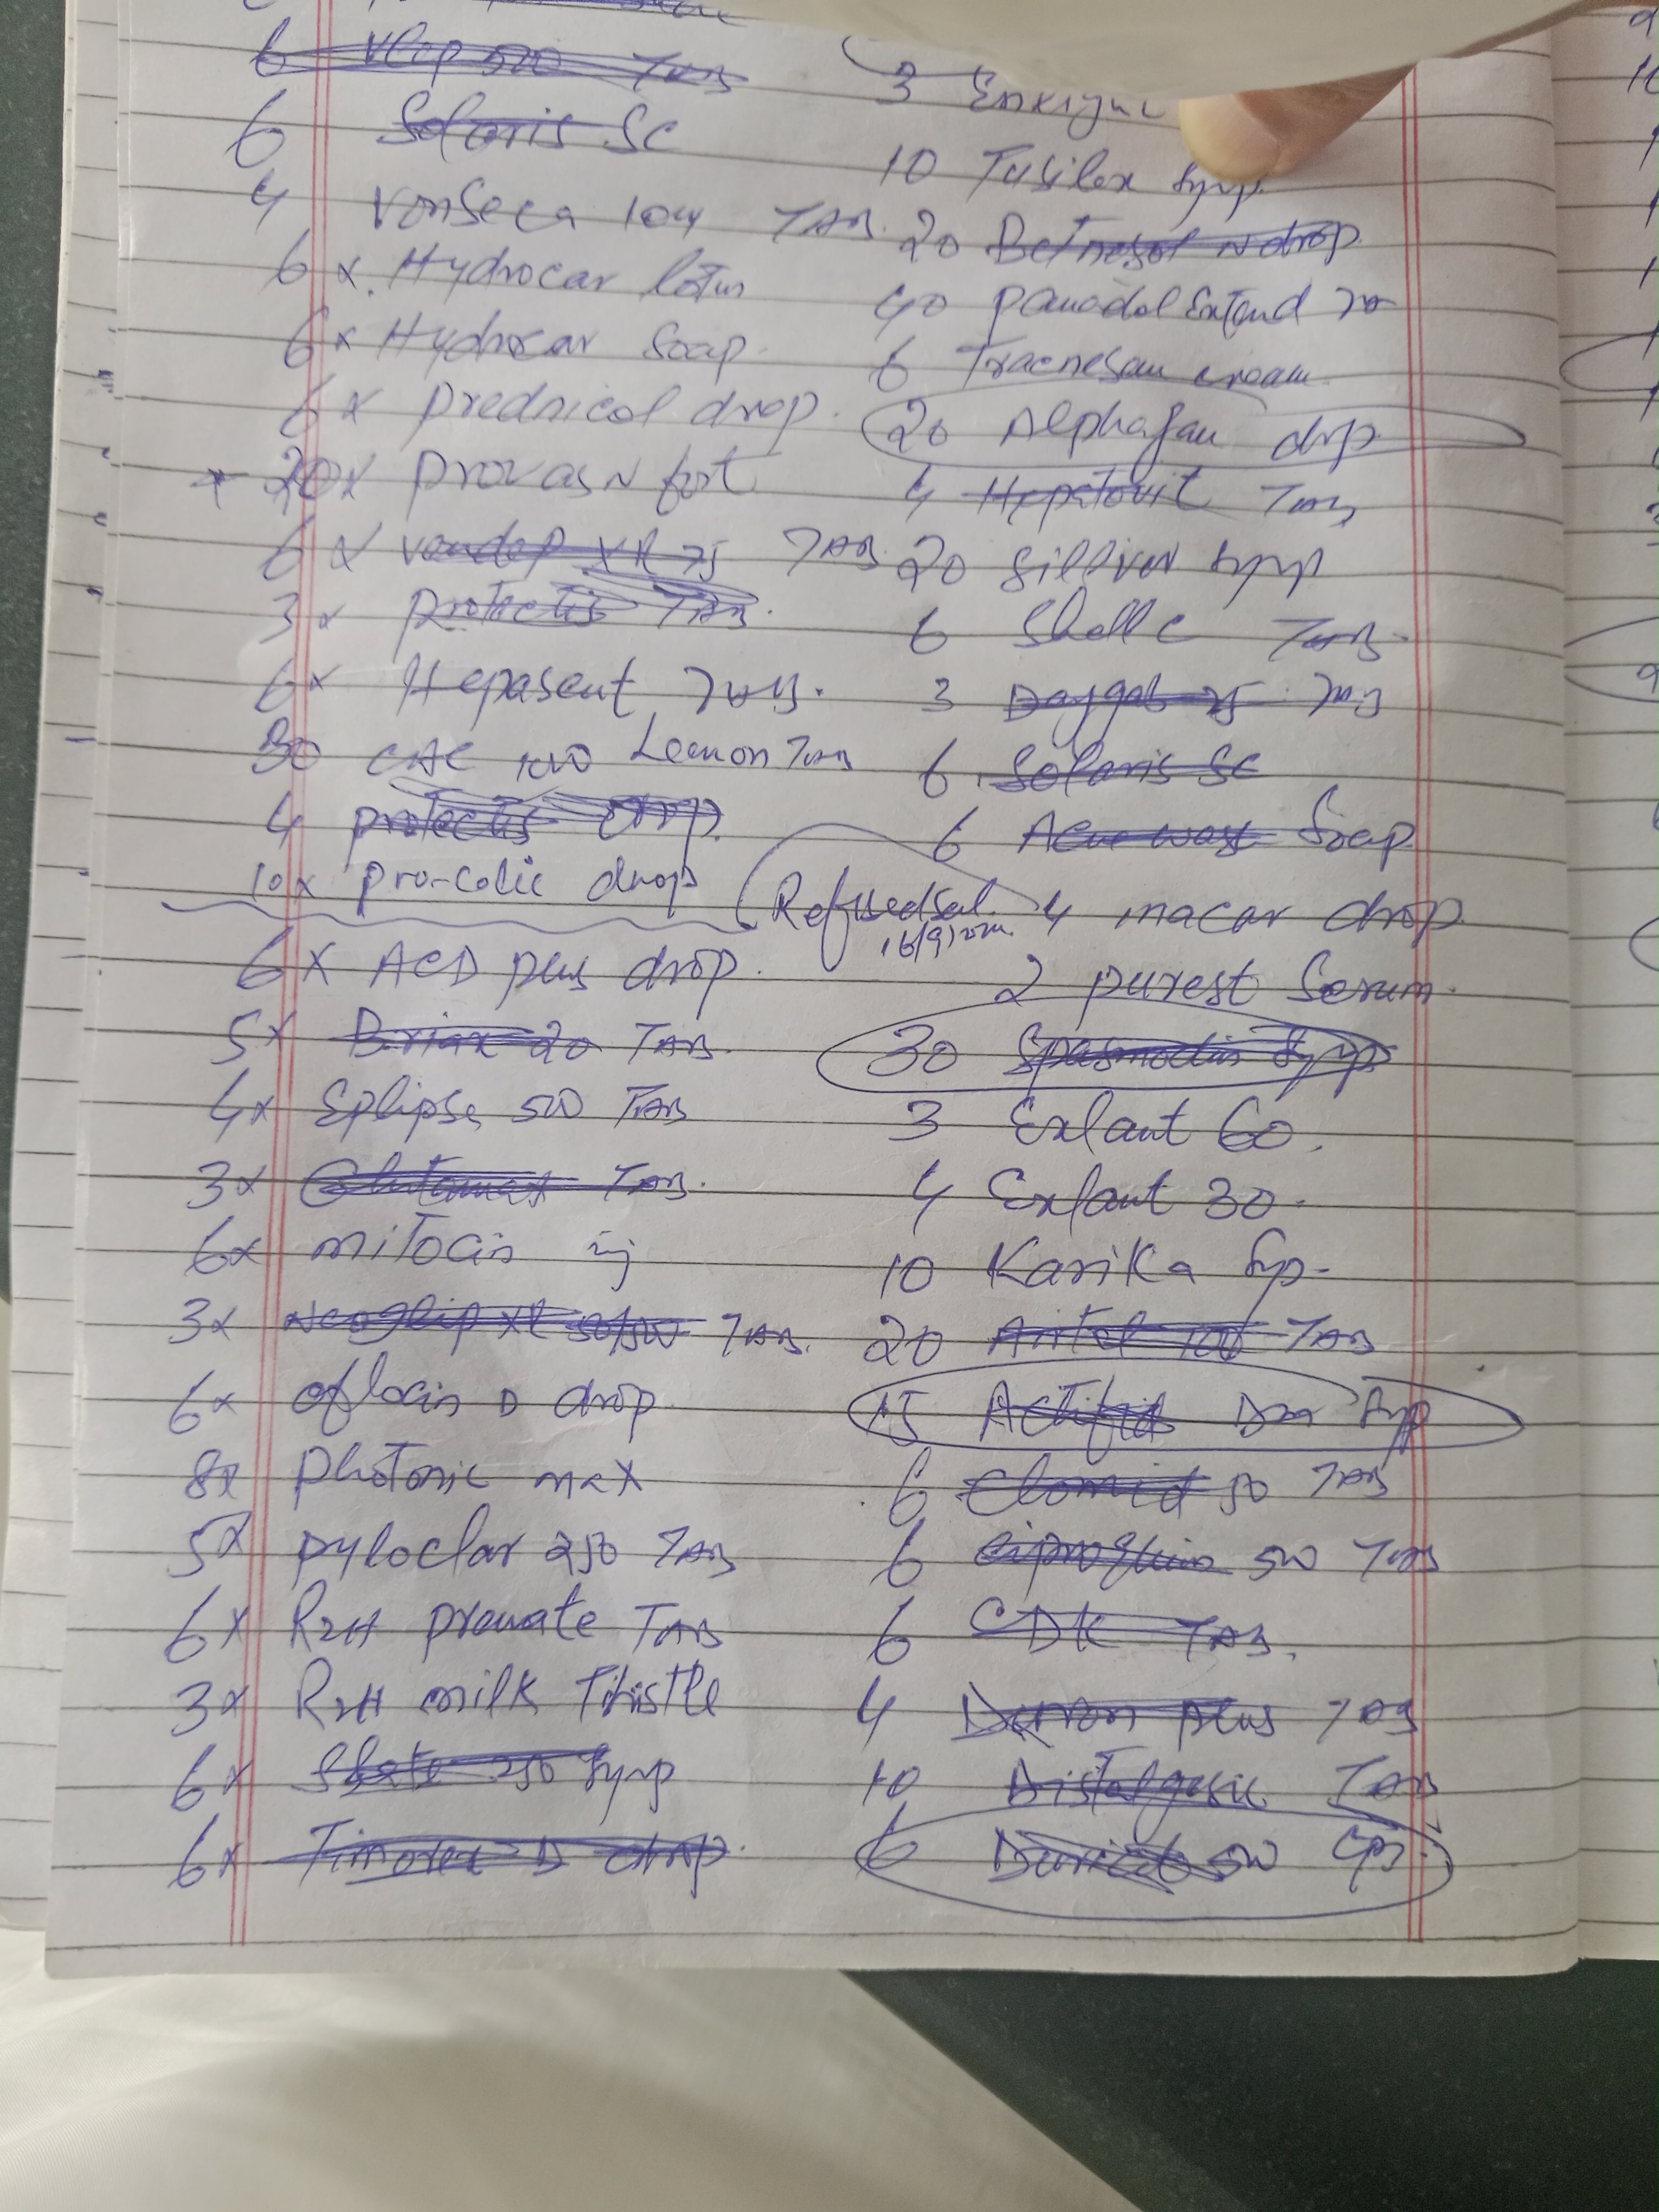 6 Vlep 500 TAB
6 Solaris SC
4 Vonseca 10
6 x Hydrocar lotun
6 x Hydrocar Soap
6 x prednicol drop.
20 x provas N fort
6 x vendep XR 75 TAB
3 x protectis TAB.
6 x Hepasent TAB.
30 CAC 1000 Lemon TAB
4 protectis drop.
10 x pro-colic drop
6 x ACD plus drop.
5 x 20 TAB.
4 x Eplipse 500 TAB
3 x TAB.
6 x mitocin inj
3 x Neoglip XR 50/500 TAB.
6 x oflocin D drop
8x Photonic max
5x pyloclar 250 TAB
6 x R2H prenate TAB
3 x R2H milk Thistle
6 x 250 Syrup
6 x D drop.
3
10 Tusilex Syrup
20 Betnesol N drop
40 panadol Extend TAB
6 Tracnesan cream
20 Alphagan drop
4 Hepatovit TAB
20 Silliver Syrup
6 Shell C TAB
3 Daygab 75 TAB
6 Solaris SC
6 Acne wash Soap
Refused
4 macar drop
2 purest Serum
30 Spasmodin Syrup
3 Exlant 60.
4 Exlant 30.
10 Karika Syp.
20 Airtal 100 TAB
15 Actified Dm Syp
6 Clomid 50 TAB
6 500 TAB
6 CDK TAB.
4 plus TAB
10 Distalgesic TAB
6 500 Cps.